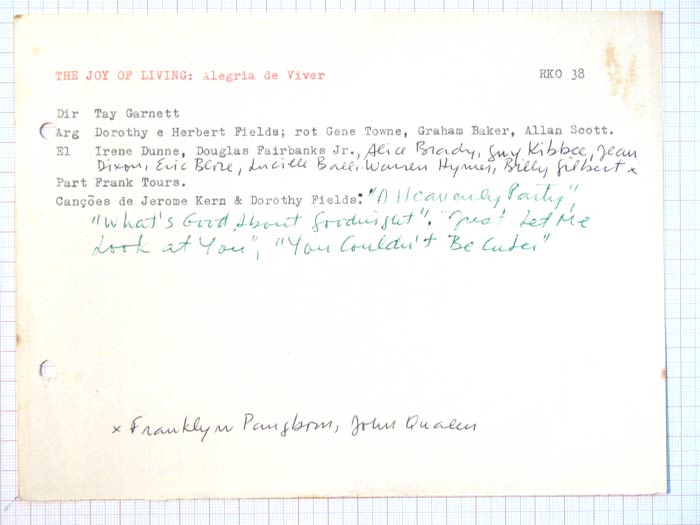 THE JOY OF LIVING: Alegria de Viver RKO 38
Dir Tay Garnett
Arg Dorothy e Herbert Fields; rot Gene Towne, Graham Baker, Allan Scott.
El Irene Dunne, Douglas Fairbanks Jr., Alice Brady, Guy Kibbee, Jean
Dixon, Eric Blore, Lucille Ball, Warren Hymer, Billy Gilbert x
Part Frank Tours.
Canções de Jerome Kern & Dorothy Fields: "A Heavenly Party",
"What's Good About Goodnight". "Just Let Me
Look at You", "You Couldn't Be Cuter"
x Franklyn Pangborn, John Qualen